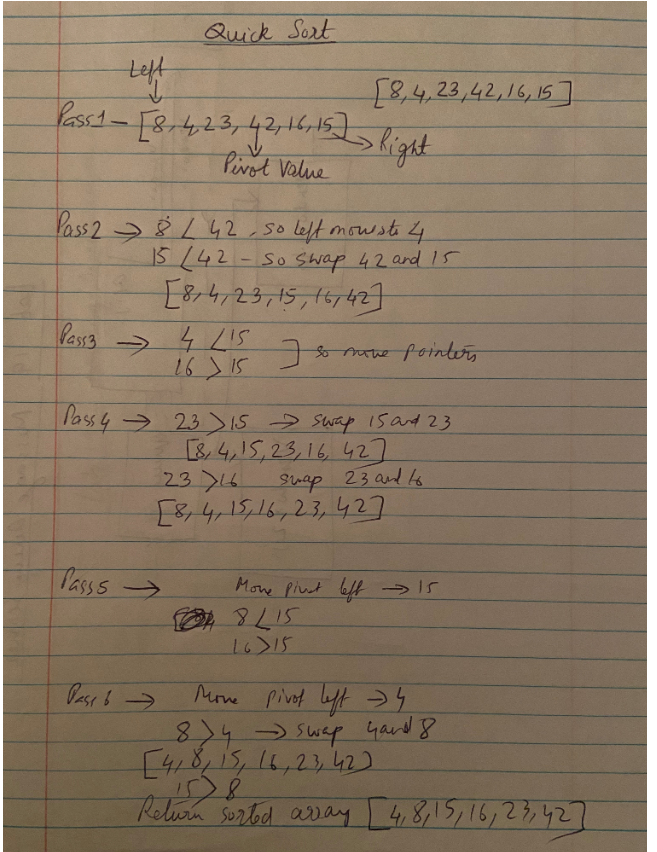 Quick Sort
Left
[8,4,23,42,16,15]
Pass1 – [8,4,23, 42,16,15]
Right
Pivot Value
Pass2 → 8 < 42 , so left moves to 4
15 < 42 – so swap 42 and 15
[8,4,23,15,16,42]
Pass3 → 4 < 15
16 > 15 ] so move pointers
Pass4 → 23 > 15 → swap 15 and 23
[8,4,15,23,16,42]
23 > 16 swap 23 and 16
[8,4,15,16,23,42]
Pass5 → Move pivot left → 15
8 < 15
16 > 15
Pass 6 → Move pivot left → 4
8 > 4 → swap 4 and 8
[4,8,15,16,23,42]
15 > 8
Return sorted array [4,8,15,16,23,42]